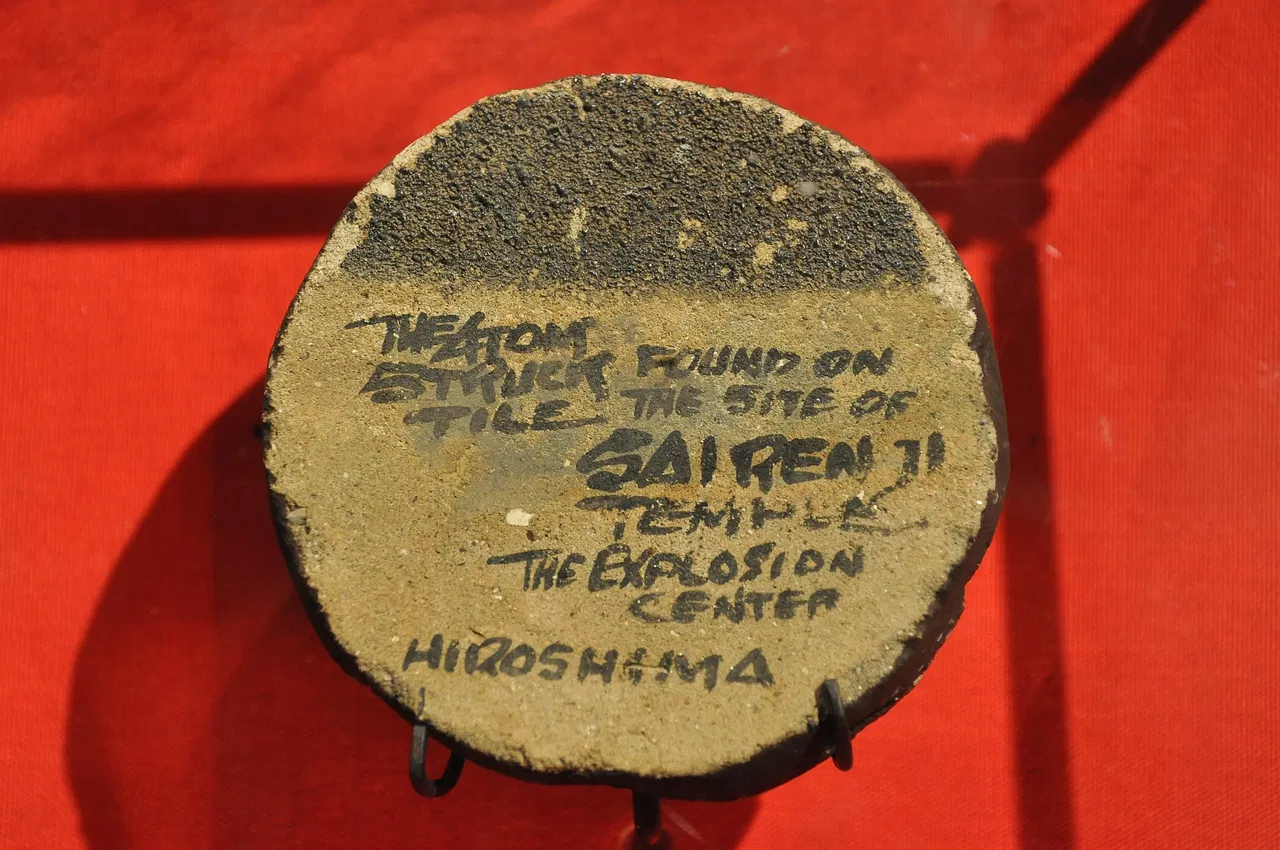 THE ATOM
STRUCK FOUND ON
TILE THE SITE OF
SAIRENJI
TEMPLE
THE EXPLOSION
CENTER
HIROSHIMA